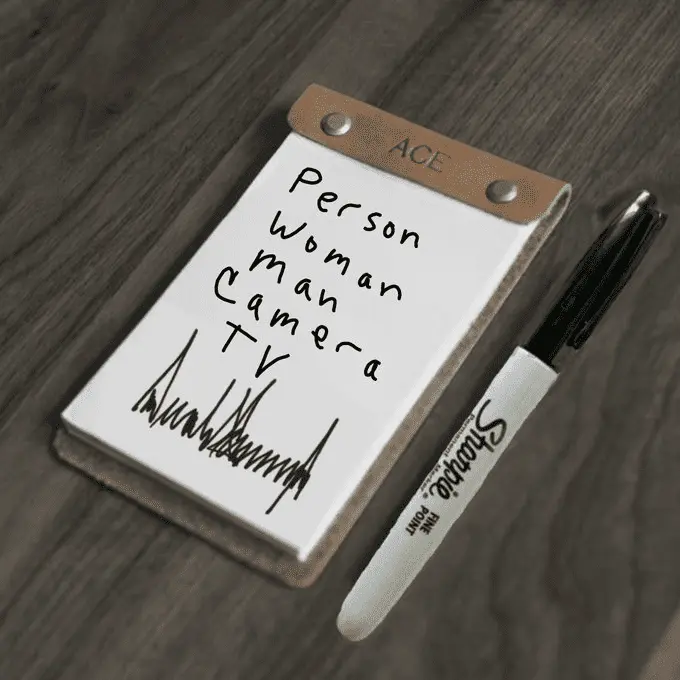 ACE
Person
Woman
man
Camera
TV
Sharpie
Permanent Marker
FINE
POINT